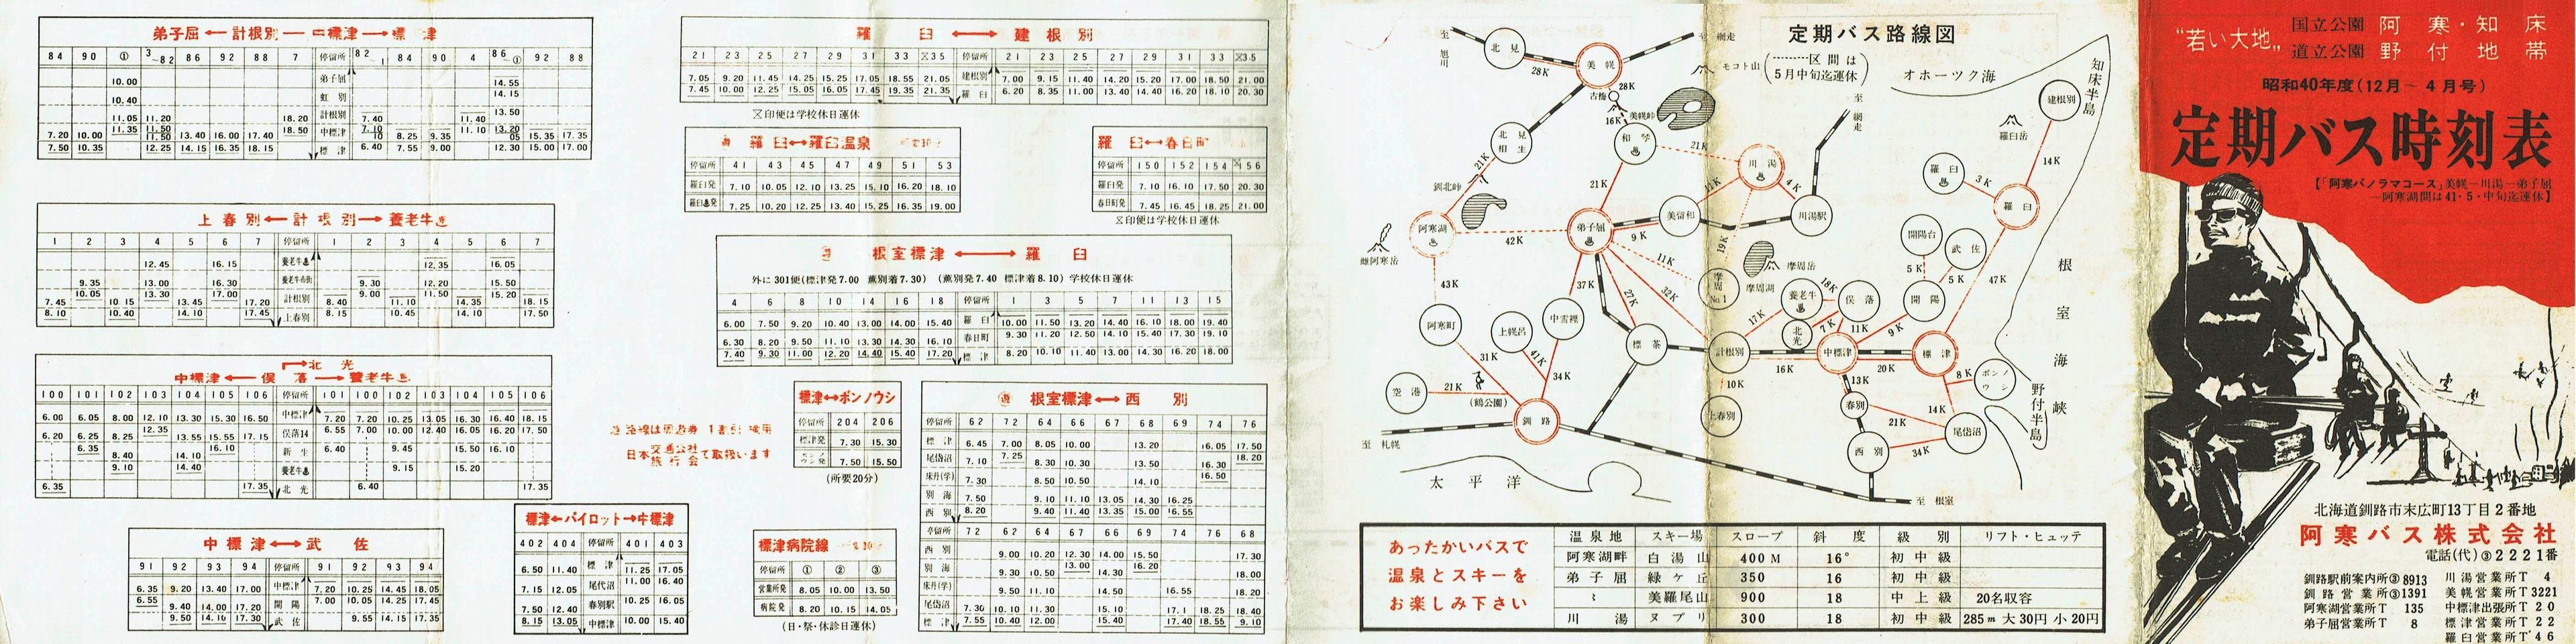 弟子屈 ← 計根別 ― 中標津 → 標津
84 90 ① 3~82 86 92 88 7 停留所 82~1 84 90 4 86~① 92 88
10.00 弟子屈 14.55
10.40 虹別 14.15
11.05 11.20 18.20 計根別 7.40 11.40 13.50
7.20 10.00 11.35 11.50 13.40 16.00 17.40 18.50 中標津 7.10 8.25 9.35 11.10 13.20 15.35 17.35
7.50 10.35 12.25 14.15 16.35 18.15 標津 6.40 7.55 9.00 12.30 15.00 17.00
上春別 ← 計根別 → 養老牛
1 2 3 4 5 6 7 停留所 1 2 3 4 5 6 7
12.45 16.15 養老牛 12.35 16.05
9.35 13.00 16.30 養老牛市街 9.30 12.20 15.50
7.45 10.05 10.15 13.30 13.45 17.00 17.20 計根別 8.40 9.00 11.10 11.50 14.35 15.20 18.15
8.10 10.40 14.10 17.45 上春別 8.15 10.45 14.10 17.50
北光
中標津 ← 俣落 → 養老牛
100 101 102 103 104 105 106 停留所 101 100 102 103 104 105 106
6.00 6.05 8.00 12.10 13.30 15.30 16.50 中標津 7.20 7.20 10.25 13.05 16.30 16.40 18.15
6.20 6.25 8.25 12.35 13.55 15.55 17.15 俣落14 6.55 7.00 10.00 12.40 16.05 16.20 17.50
6.35 8.40 14.10 16.10 新生 6.40 9.45 15.50 16.10
9.10 14.40 養老牛 9.15 15.20
6.35 17.35 北光 6.40 17.35
中標津 ↔ 武佐
91 92 93 94 停留所 91 92 93 94
6.35 9.20 13.40 17.00 中標津 7.20 10.25 14.45 18.05
6.55 9.40 14.00 17.20 開陽 7.00 10.05 14.25 17.45
9.50 14.10 17.30 武佐 9.55 14.15 17.35
標津 ← パイロット → 中標津
402 404 停留所 401 403
6.50 11.40 標津 11.25 17.05
7.15 12.05 尾代沼 11.00 16.40
7.50 12.40 春別駅 10.25 16.05
8.15 13.05 中標津 10.00 15.40
羅臼 ↔ 建根別
21 23 25 27 29 31 33 35 停留所 21 23 25 27 29 31 33 35
7.05 9.20 11.45 14.25 15.25 17.05 18.55 21.05 建根別 7.00 9.15 11.40 14.20 15.20 17.00 18.50 21.00
7.45 10.00 12.25 15.05 16.05 17.45 19.35 21.35 羅臼 6.20 8.35 11.00 13.40 14.40 16.20 18.10 20.30
印便は学校休日運休
羅臼 ↔ 羅臼温泉
停留所 41 43 45 47 49 51 53
羅臼発 7.10 10.05 12.10 13.25 15.10 16.20 18.10
羅臼発 7.25 10.20 12.25 13.40 15.25 16.35 19.00
羅臼 ↔ 春日町
停留所 150 152 154 56
羅臼発 7.10 16.10 17.50 20.30
春日町発 7.45 16.45 18.25 21.00
印便は学校休日運休
根室標津 ↔ 羅臼
外に301便(標津発7.00 薫別着7.30) (薫別発7.40 標津着8.10) 学校休日運休
4 6 8 10 14 16 18 停留所 1 3 5 7 11 13 15
6.00 7.50 9.20 10.40 13.00 14.00 15.40 羅臼 10.00 11.50 13.20 14.40 16.10 18.00 19.40
6.30 8.20 9.50 11.10 13.30 14.30 16.10 春日町 9.30 11.20 12.50 14.10 15.40 17.30 19.10
7.40 9.30 11.00 12.20 14.40 15.40 17.20 標津 8.20 10.10 11.40 13.00 14.30 16.20 18.00
路線は周遊券1割引適用
日本交通公社
旅行会
で取扱います
標津 ↔ ポンノウシ
停留所 204 206
標津発 7.30 15.30
ポンノウシ発 7.50 15.50
(所要20分)
標津病院線
停留所 ① ② ③
営業所発 8.05 10.00 13.50
病院発 8.20 10.15 14.05
(日・祭・休診日運休)
根室標津 ↔ 西別
停留所 62 72 64 66 67 68 69 74 76
標津 6.45 7.00 8.05 10.00 13.20 16.05 17.50
尾岱沼 7.10 7.25 8.30 10.30 13.50 16.30 18.20
床丹(学) 7.30 8.50 10.50 14.10 16.50
別海 7.50 9.10 11.10 13.05 14.30 16.25
西別 8.20 9.40 11.40 13.35 15.00 16.55
停留所 72 62 64 67 66 69 74 76 68
西別 9.00 10.20 12.30 14.00 15.50 17.30
別海 9.30 10.50 13.00 14.30 16.20 18.00
床丹(学) 9.50 11.10 14.50 16.55 18.20
尾岱沼 7.30 10.10 11.30 15.10 17.1 18.25 18.40
標津 7.55 10.40 12.00 15.40 17.40 18.55 9.10
定期バス路線図
(……区間は
5月中旬迄運休)
至旭川
北見
28K
美幌
至網走
モコト山
オホーツク海
知床半島
28K
古梅
美幌峠
16K
北見相生
和琴
21K
川湯
至網走
建根別
羅臼岳
14K
羅臼
3K
羅臼
釧北峠
21K
21K
11K
4K
阿寒湖
雌阿寒岳
42K
弟子屈
9K
美留和
川湯駅
19K
開陽台
武佐
5K
5K
47K
根室海峡
43K
37K
27K
32K
11K
摩周No.1
摩周湖
摩周岳
養老牛
18K
俣落
開陽
阿寒町
上幌呂
中雪裡
標茶
17K
北光
7K
11K
9K
計根別
16K
中標津
20K
標津
31K
41K
34K
10K
13K
8K
ポンノウシ
空港
21K
(鶴公園)
釧路
上春別
春別
14K
21K
尾岱沼
野付半島
至札幌
西別
34K
至根室
太平洋
あったかいバスで
温泉とスキーを
お楽しみ下さい
温泉地 スキー場 スロープ 斜度 級別 リフト・ヒュッテ
阿寒湖畔 白湯山 400M 16° 初中級
弟子屈 緑ケ丘 350 16 初中級
〃 美羅尾山 900 18 中上級 20名収容
川湯 ヌプリ 300 18 初中級 285m 大30円 小20円
"若い大地"
国立公園 阿寒・知床
道立公園 野付地帯
昭和40年度(12月~4月号)
定期バス時刻表
【「阿寒パノラマコース」美幌―川湯―弟子屈
―阿寒湖間は41・5・中旬迄運休】
北海道釧路市末広町13丁目2番地
阿寒バス株式会社
電話(代)③2221番
釧路駅前案内所③8913 川湯営業所T 4
釧路営業所③1391 美幌営業所T3221
阿寒湖営業所T 135 中標津出張所T 20
弟子屈営業所T 8 標津営業所T 22
羅臼営業所T 46